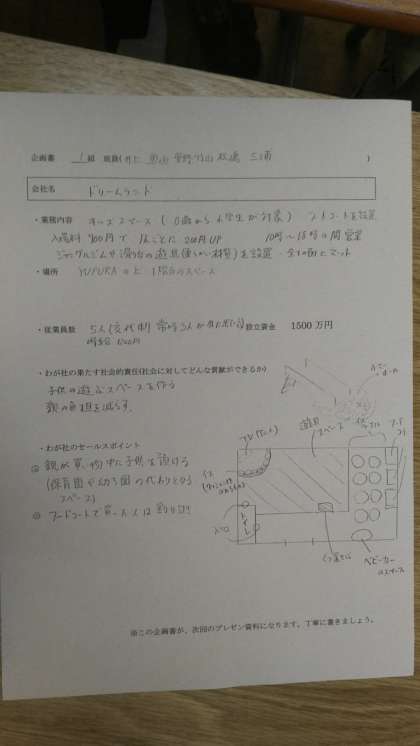 企画書　1組　班員(井上　　　　菅野　　　　　　　三浦　)
会社名　ドリームランド
・業務内容　キッズスペース (0歳から小学生が対象)　フードコートを設置
入場料　　　円で　　ごとに　200円UP　10時〜18時の間営業
ジャングルジムや滑り台の遊具(柔らかい材質)を設置・全面にマット
・場所　YUFURAの上　1階分のスペース
・従業員数　5人(交代制　常時3人が　　　)　設立資金　1500万円
時給
・わが社の果たす社会的責任(社会に対してどんな貢献ができるか)
子供の遊ぶスペースを作る
親の負担を減らす。
・わが社のセールスポイント
◎ 親が買い物中に子供を預ける
(保育園や幼ち園の代わりとなるスペース)
◎ フードコートで買った人は割り引き
遊具スペース
イス
テーブル
フードコート
入口
トイレ
くつ置き場
ベビーカー
のスペース
※この企画書が、次回のプレゼン資料になります。丁寧に書きましょう。